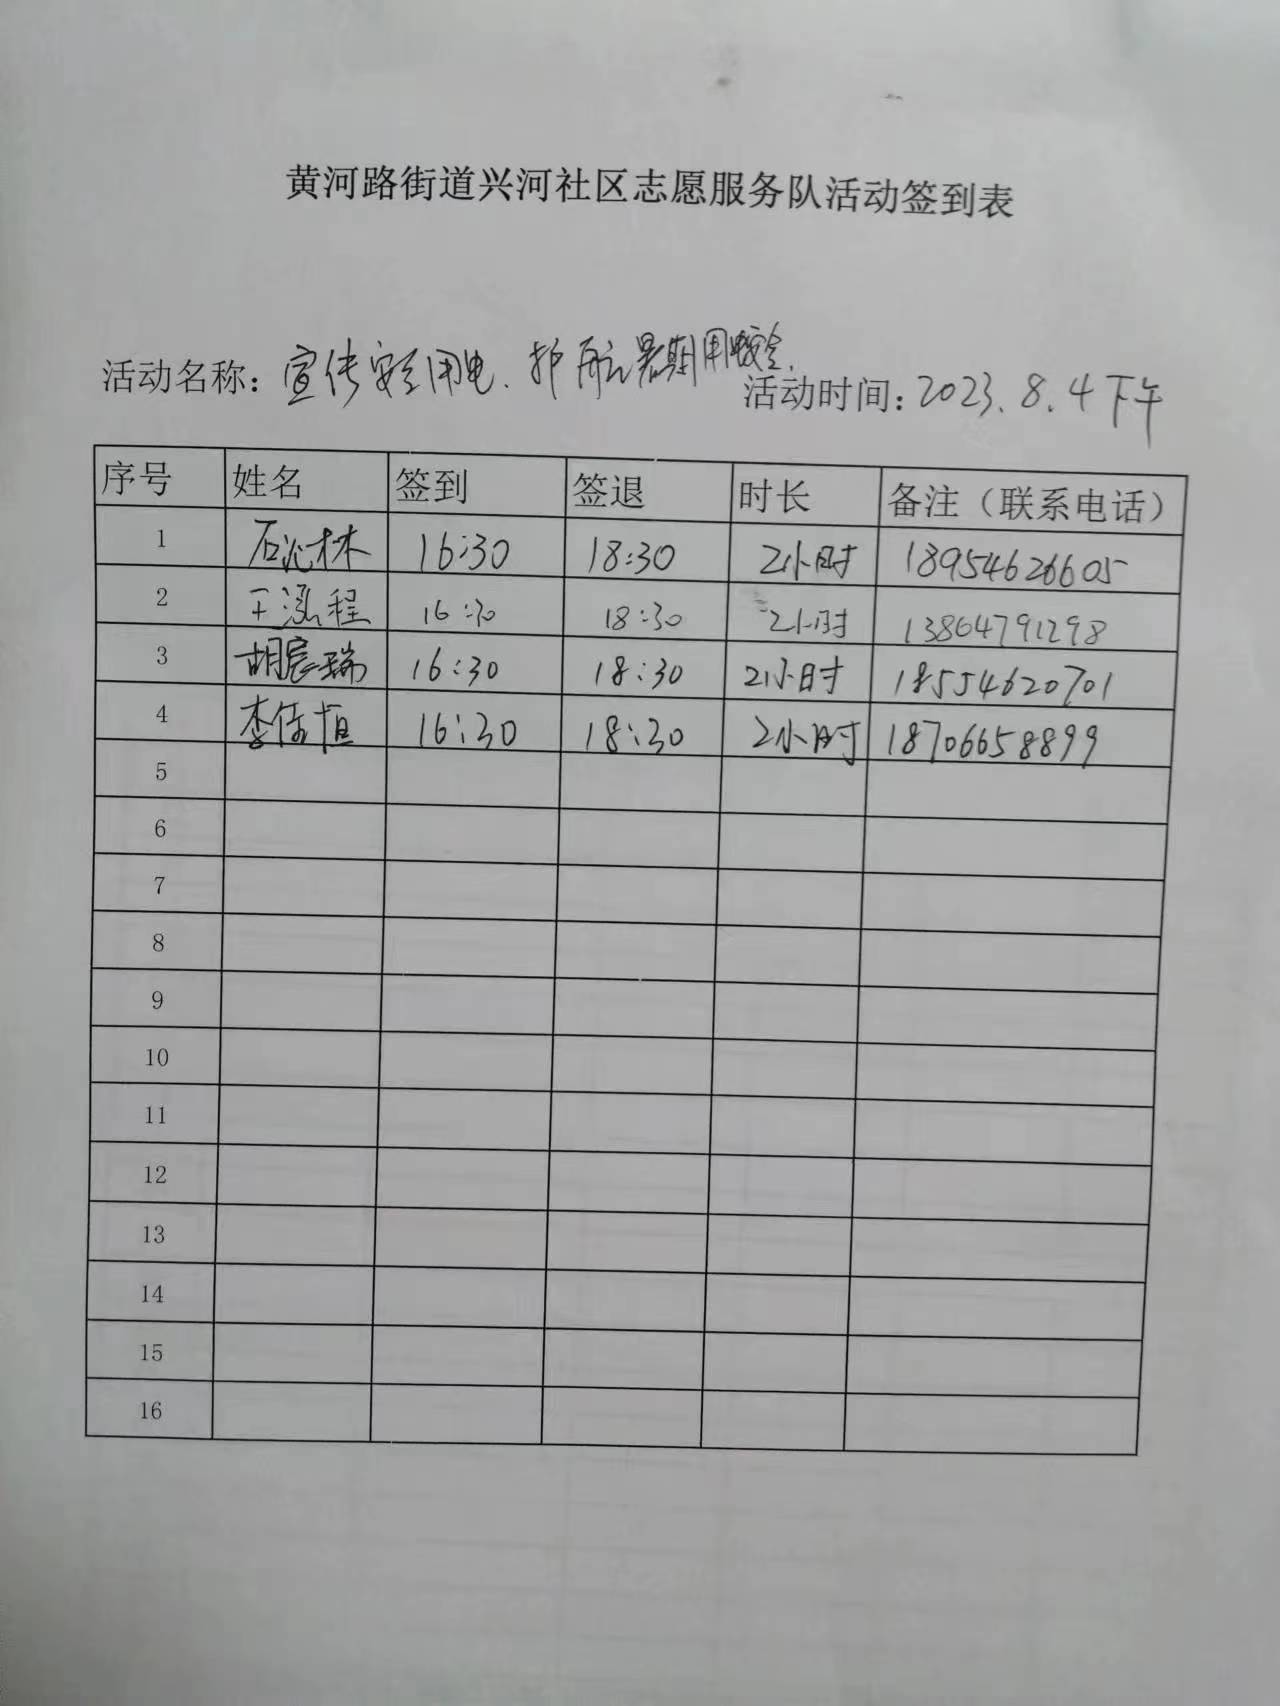 黄河路街道兴河社区志愿服务队活动签到表
活动名称：宣传安全用电、护航暑期用电安全. 活动时间：2023.8.4下午
序号 姓名 签到 签退 时长 备注（联系电话）
1 石沁林 16:30 18:30 2小时 18954626605
2 王泓程 16:30 18:30 2小时 13864791298
3 胡宸瑞 16:30 18:30 2小时 18554620701
4 李佳恒 16:30 18:30 2小时 18706658899
5
6
7
8
9
10
11
12
13
14
15
16